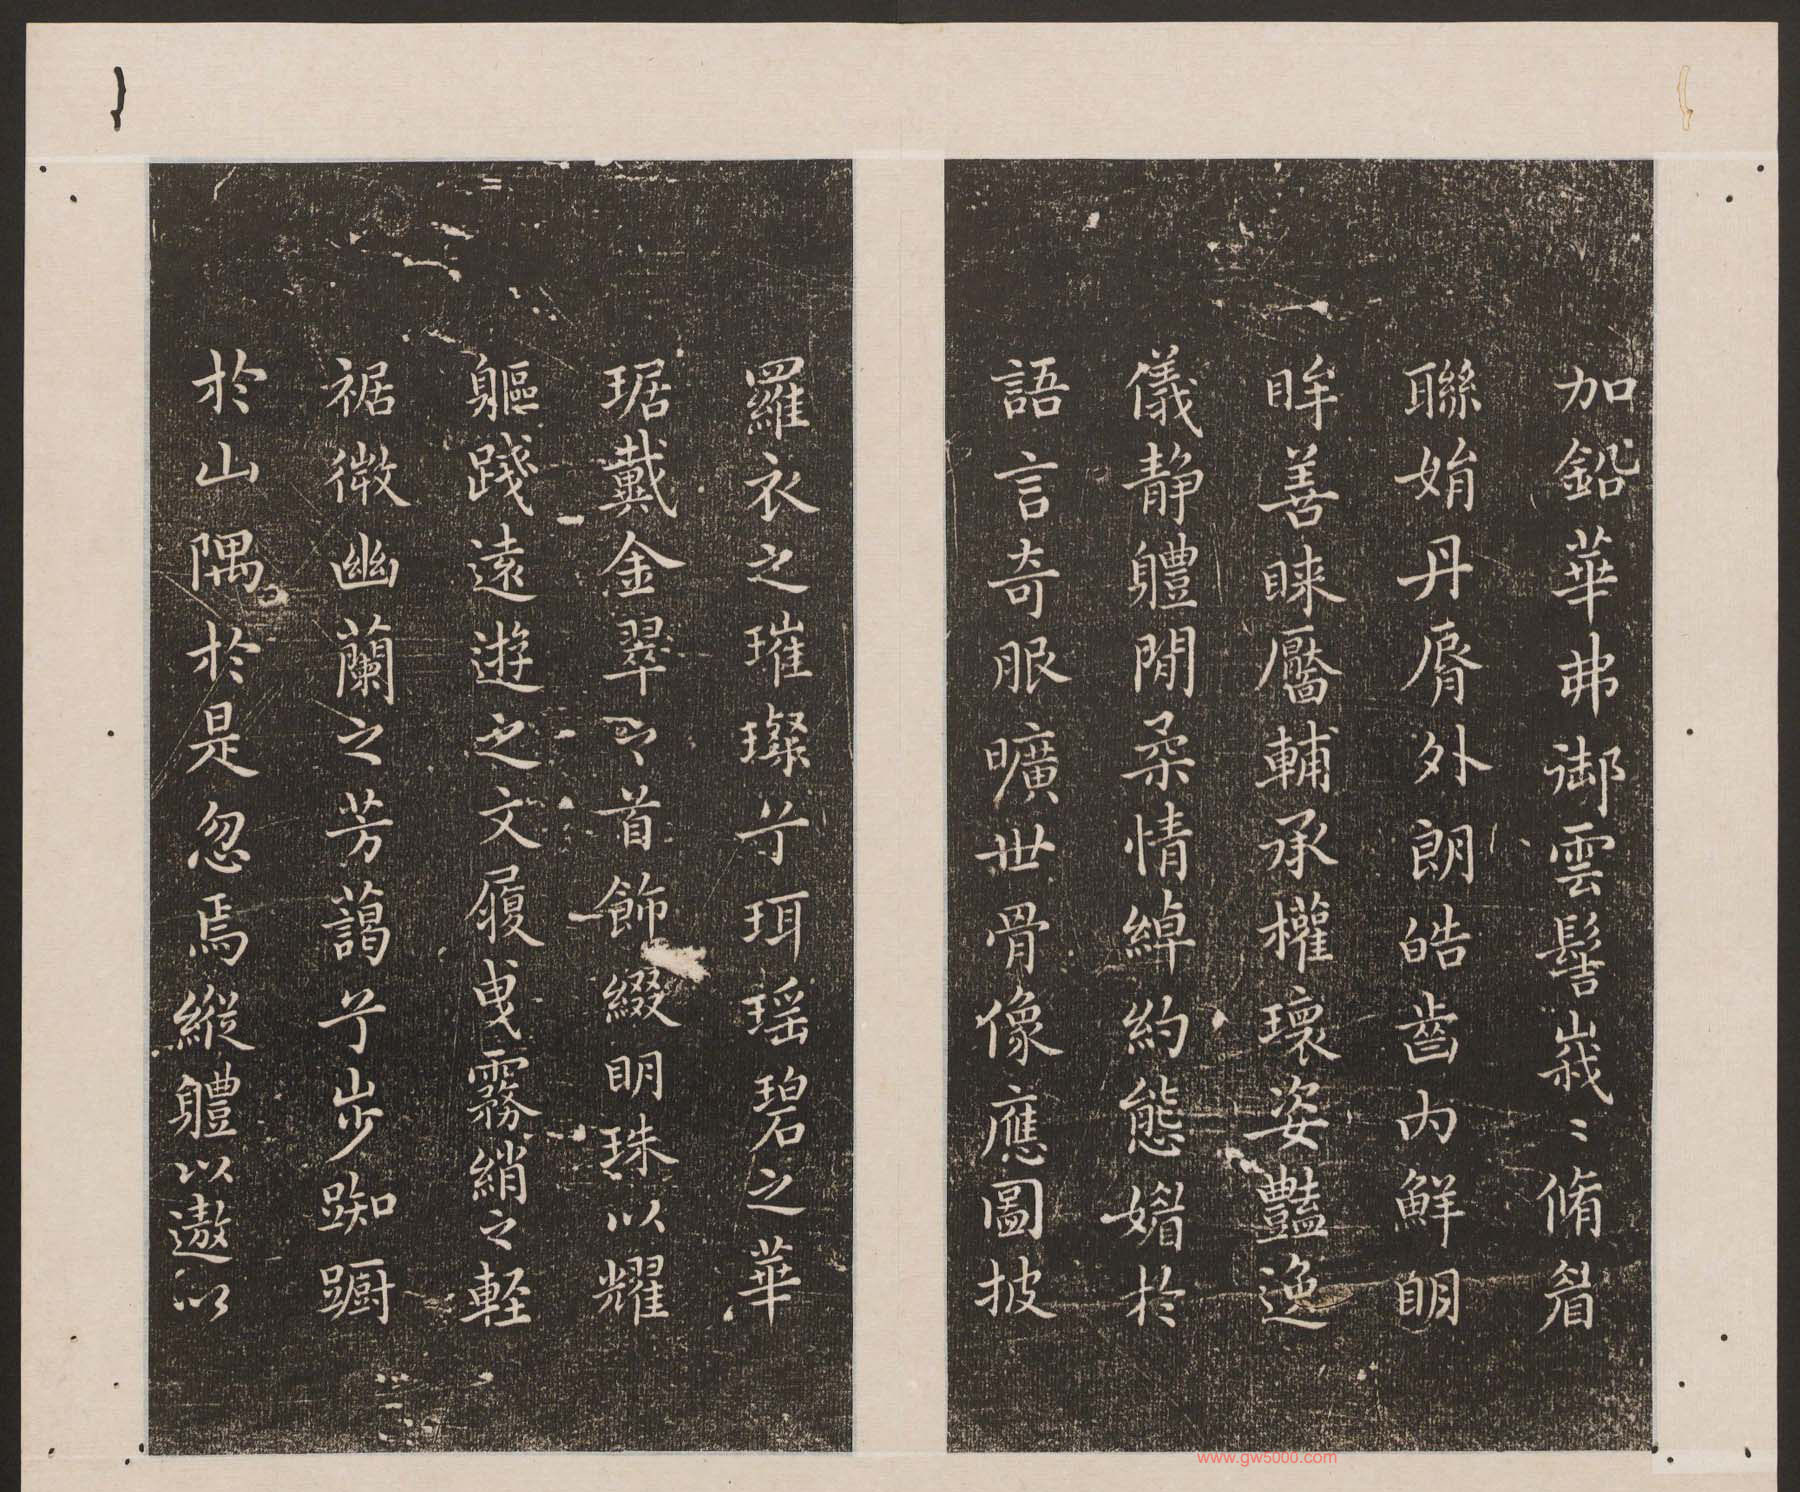 加鉛華弗御雲髻峩〻脩眉
聯娟丹脣外朗皓齒内鮮明
眸善睞靨輔承權瓌姿豔逸
儀静軆閒柔情綽約態媚於
語言奇服曠世骨像應圖披
羅衣之璀璨兮珥瑶碧之華
琚戴金翠之首飾綴明珠以耀
軀踐遠遊之文履曳霧綃之軽
裾微幽蘭之芳藹兮步踟躕
於山隅於是忽焉縱軆以遨以
www.gw5000.com